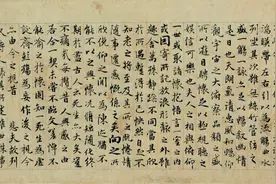 盛一觴一詠亦足以暢敘幽情
是日也天朗氣清惠風和暢仰
觀宇宙之大俯察品類之盛
所以遊目騁懷足以極視聽之
娛信可樂也夫人之相與俯仰
一世或取諸懷抱悟言一室之內
或因寄所託放浪形骸之外雖
趣舍萬殊靜躁不同當其欣
於所遇蹔得於己怏然自足不
知老之將至及其所之既惓情
隨事遷感慨係之矣向之所
欣俛仰之間以為陳迹猶不
能不以之興懷況脩短隨化終
期於盡古人云死生亦大矣豈
不痛哉每攬昔人興感之由
若合一契未嘗不臨文嗟悼不
能喻之於懷固知一死生為虛
誕齊彭殤為妄作後之視今